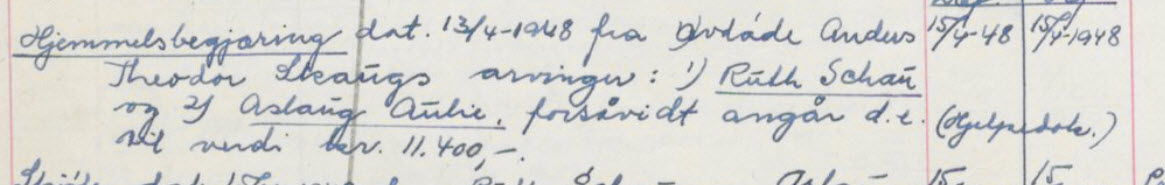 Hjemmelsbegjæring dat. 13/4-1948 fra avdøde Anders 15/4-48 15/4-1948
Theodor Skaugs arvinger: 1) Ruth Schau
og 2) Aslaug Aulie, forsåvidt angår d.e. (Hjelpedok.)
til verdi kr. 11.400,-.